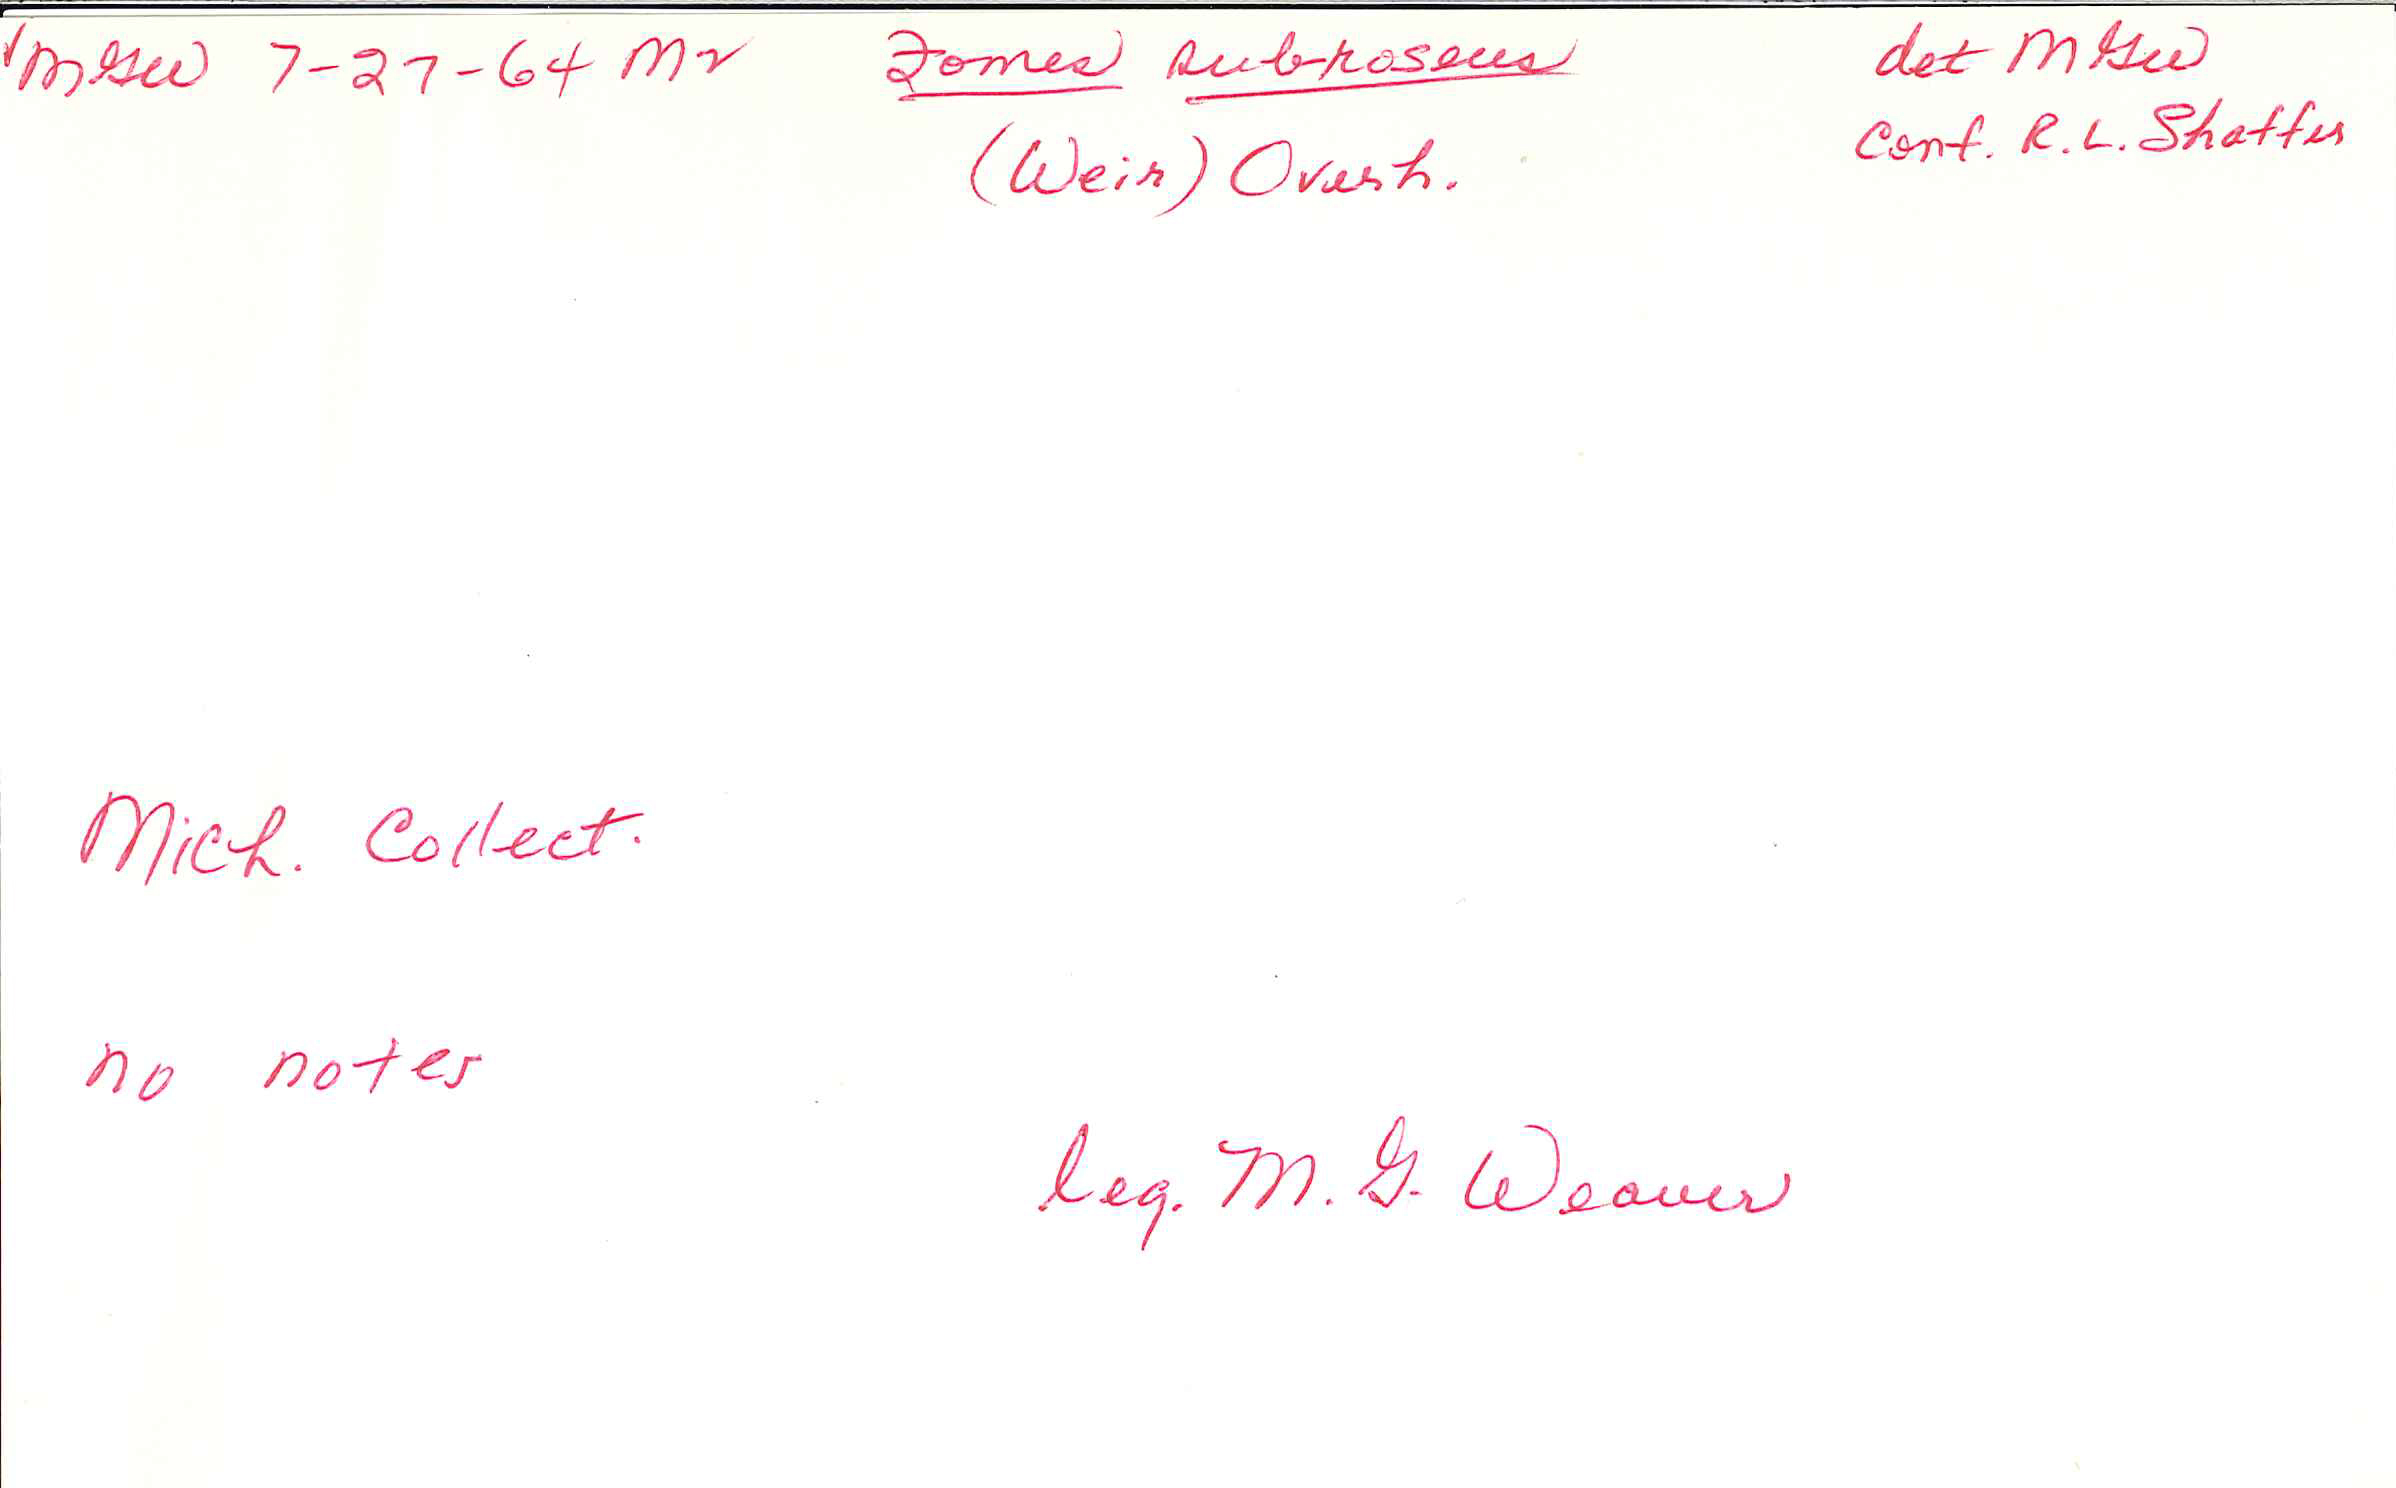 MGW 7-27-64 M2 Fomes subroseus det MGW
(Weir) Overh. Conf. R.L. Shaffer
Mich. Collect.
no notes
leg. M. G. Weaver